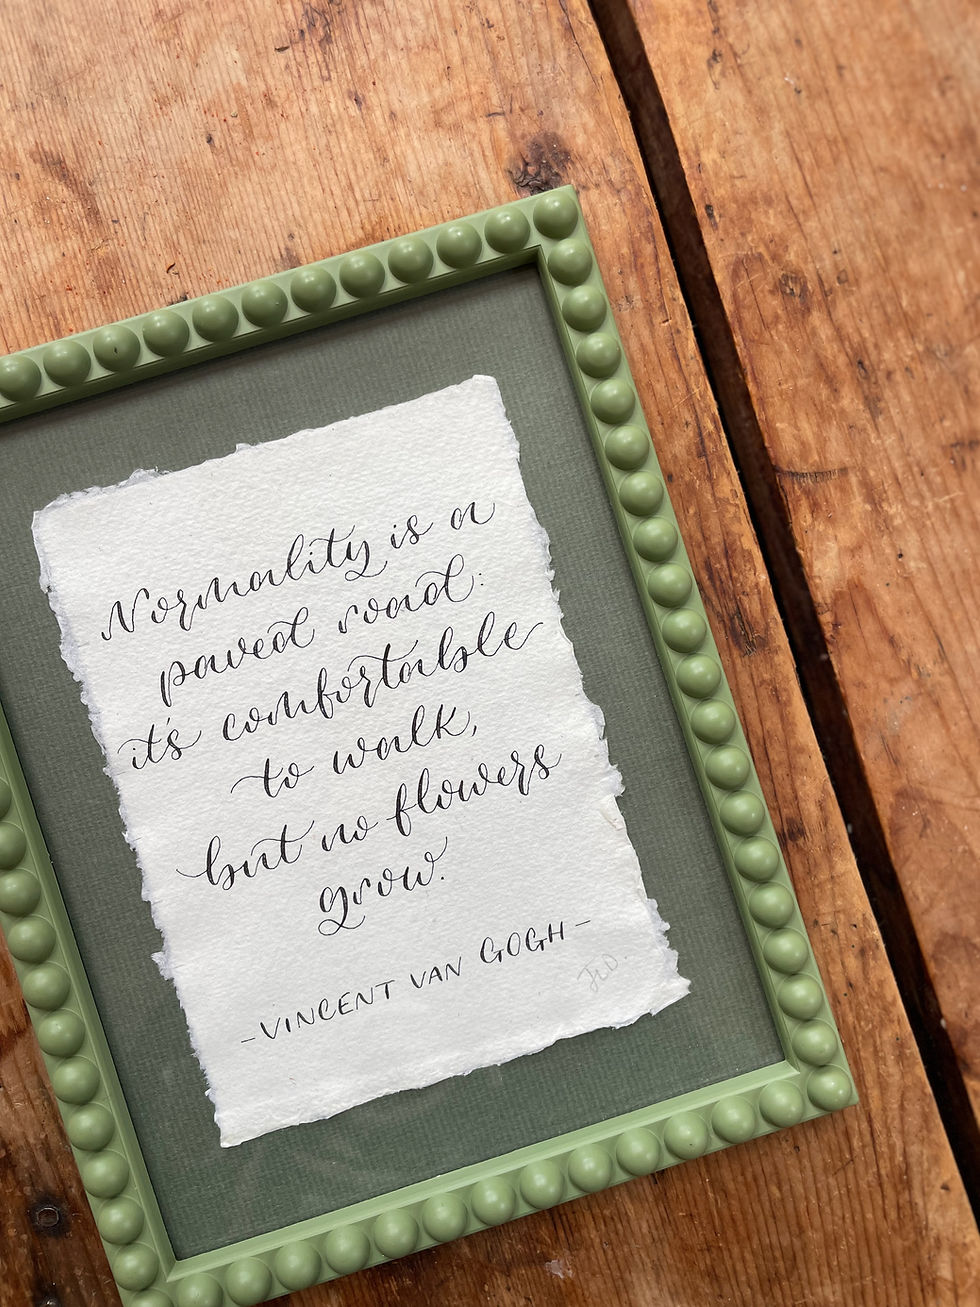 Normality is a
paved road:
it's comfortable
to walk,
but no flowers
grow.
- VINCENT VAN GOGH -